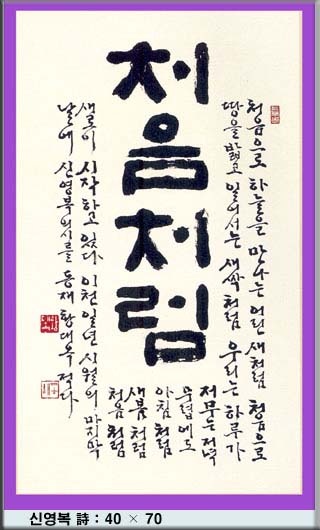 처음처럼
처음으로 하늘을 만나는 어린 새처럼 처음으로
땅을 밟고 일어서는 새싹처럼 우리는 하루가
저무는 저녁
무렵에도
아침처럼
새봄처럼
처음처럼
새로이 시작하고 있다. 이천일년 시월의 마지막
날에 신영복의 시를 동재 황대욱 적다
신영복 詩 : 40 × 70